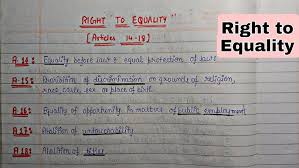 RIGHT TO EQUALITY
[Articles 14-18]
Right to
Equality
A.14: Equality before law & equal protection of laws
A.15: Prohibition of discrimination on grounds of religion,
race, caste, sex or place of birth.
A.16: Equality of opportunity in matters of public employment
A.17: Abolition of untouchability
A.18: Abolition of titles